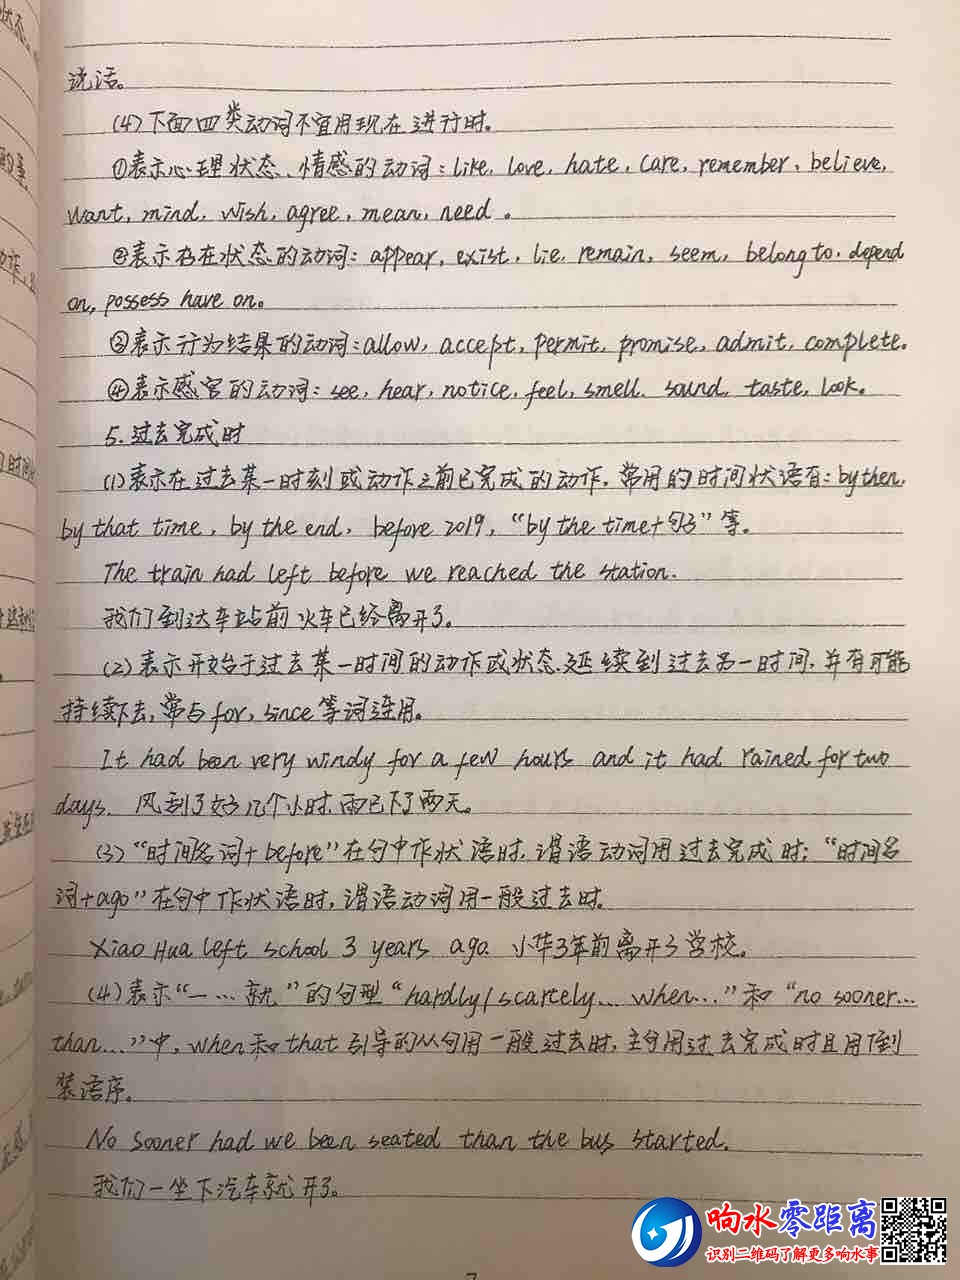 说话。
(4)下面四类动词不宜用现在进行时。
①表示心理状态、情感的动词:like, love, hate, care, remember, believe,
want, mind, wish, agree, mean, need。
②表示存在状态的动词:appear, exist, lie, remain, seem, belong to, depend
on, possess have on。
③表示行为结果的动词:allow, accept, permit, promise, admit, complete。
④表示感官的动词:see, hear, notice, feel, smell, sound, taste, look。
5.过去完成时
(1)表示在过去某一时刻或动作之前已完成的动作,常用的时间状语有:by then,
by that time, by the end, before 2019, “by the time+句子”等。
The train had left before we reached the station.
我们到达车站前火车已经离开了。
(2)表示开始于过去某一时间的动作或状态延续到过去另一时间,并有可能
持续下去,常与for, since等词连用。
It had been very windy for a few hours and it had rained for two
days. 风刮了好几个小时,雨已下了两天。
(3)“时间名词+before”在句中作状语时,谓语动词用过去完成时;“时间名
词+ago”在句中作状语时,谓语动词用一般过去时。
Xiao Hua left school 3 years ago. 小华3年前离开了学校。
(4)表示“一…就”的句型“hardly/scarcely...when...”和“no sooner...
than...”中,when和that引导的从句用一般过去时,主句用过去完成时且用倒
装语序。
No sooner had we been seated than the bus started.
我们一坐下汽车就开了。
响水零距离
识别二维码了解更多响水事
7